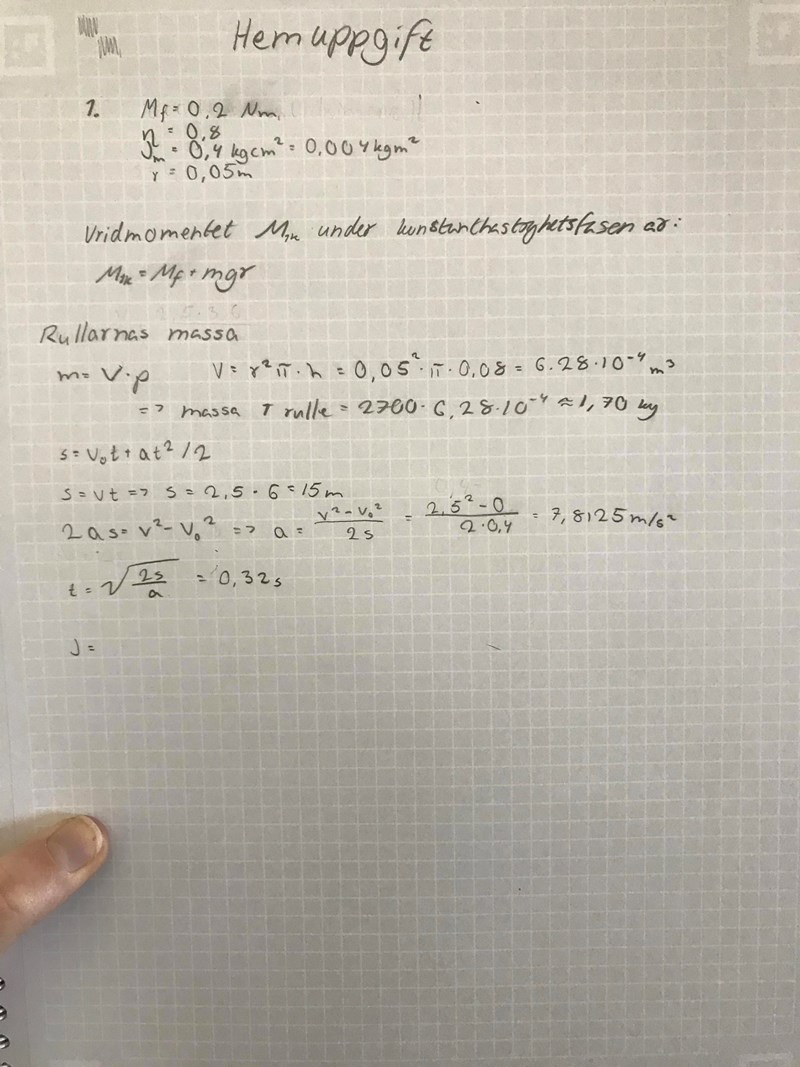 Hemuppgift
1. Mf = 0,2 Nm
η = 0,8
Jm = 0,4 kgcm² = 0,004 kgm²
r = 0,05m
Vridmomentet under konstanthastighetsfasen är:
= Mf + mgr
Rullarnas massa
m = V·ρ V = r²π·h = 0,05²·π·0,08 = 6.28·10⁻⁴ m³
=> massa rulle = 2700·6,28·10⁻⁴ ≈ 1,70 kg
s = v₀t + at²/2
s = vt => s = 2,5·6 = 15m
2as = v² - v₀² => a = (v² - v₀²)/2s = (2,5² - 0)/(2·0,4) = 7,8125 m/s²
t = √(2s/a) = 0,32s
J =